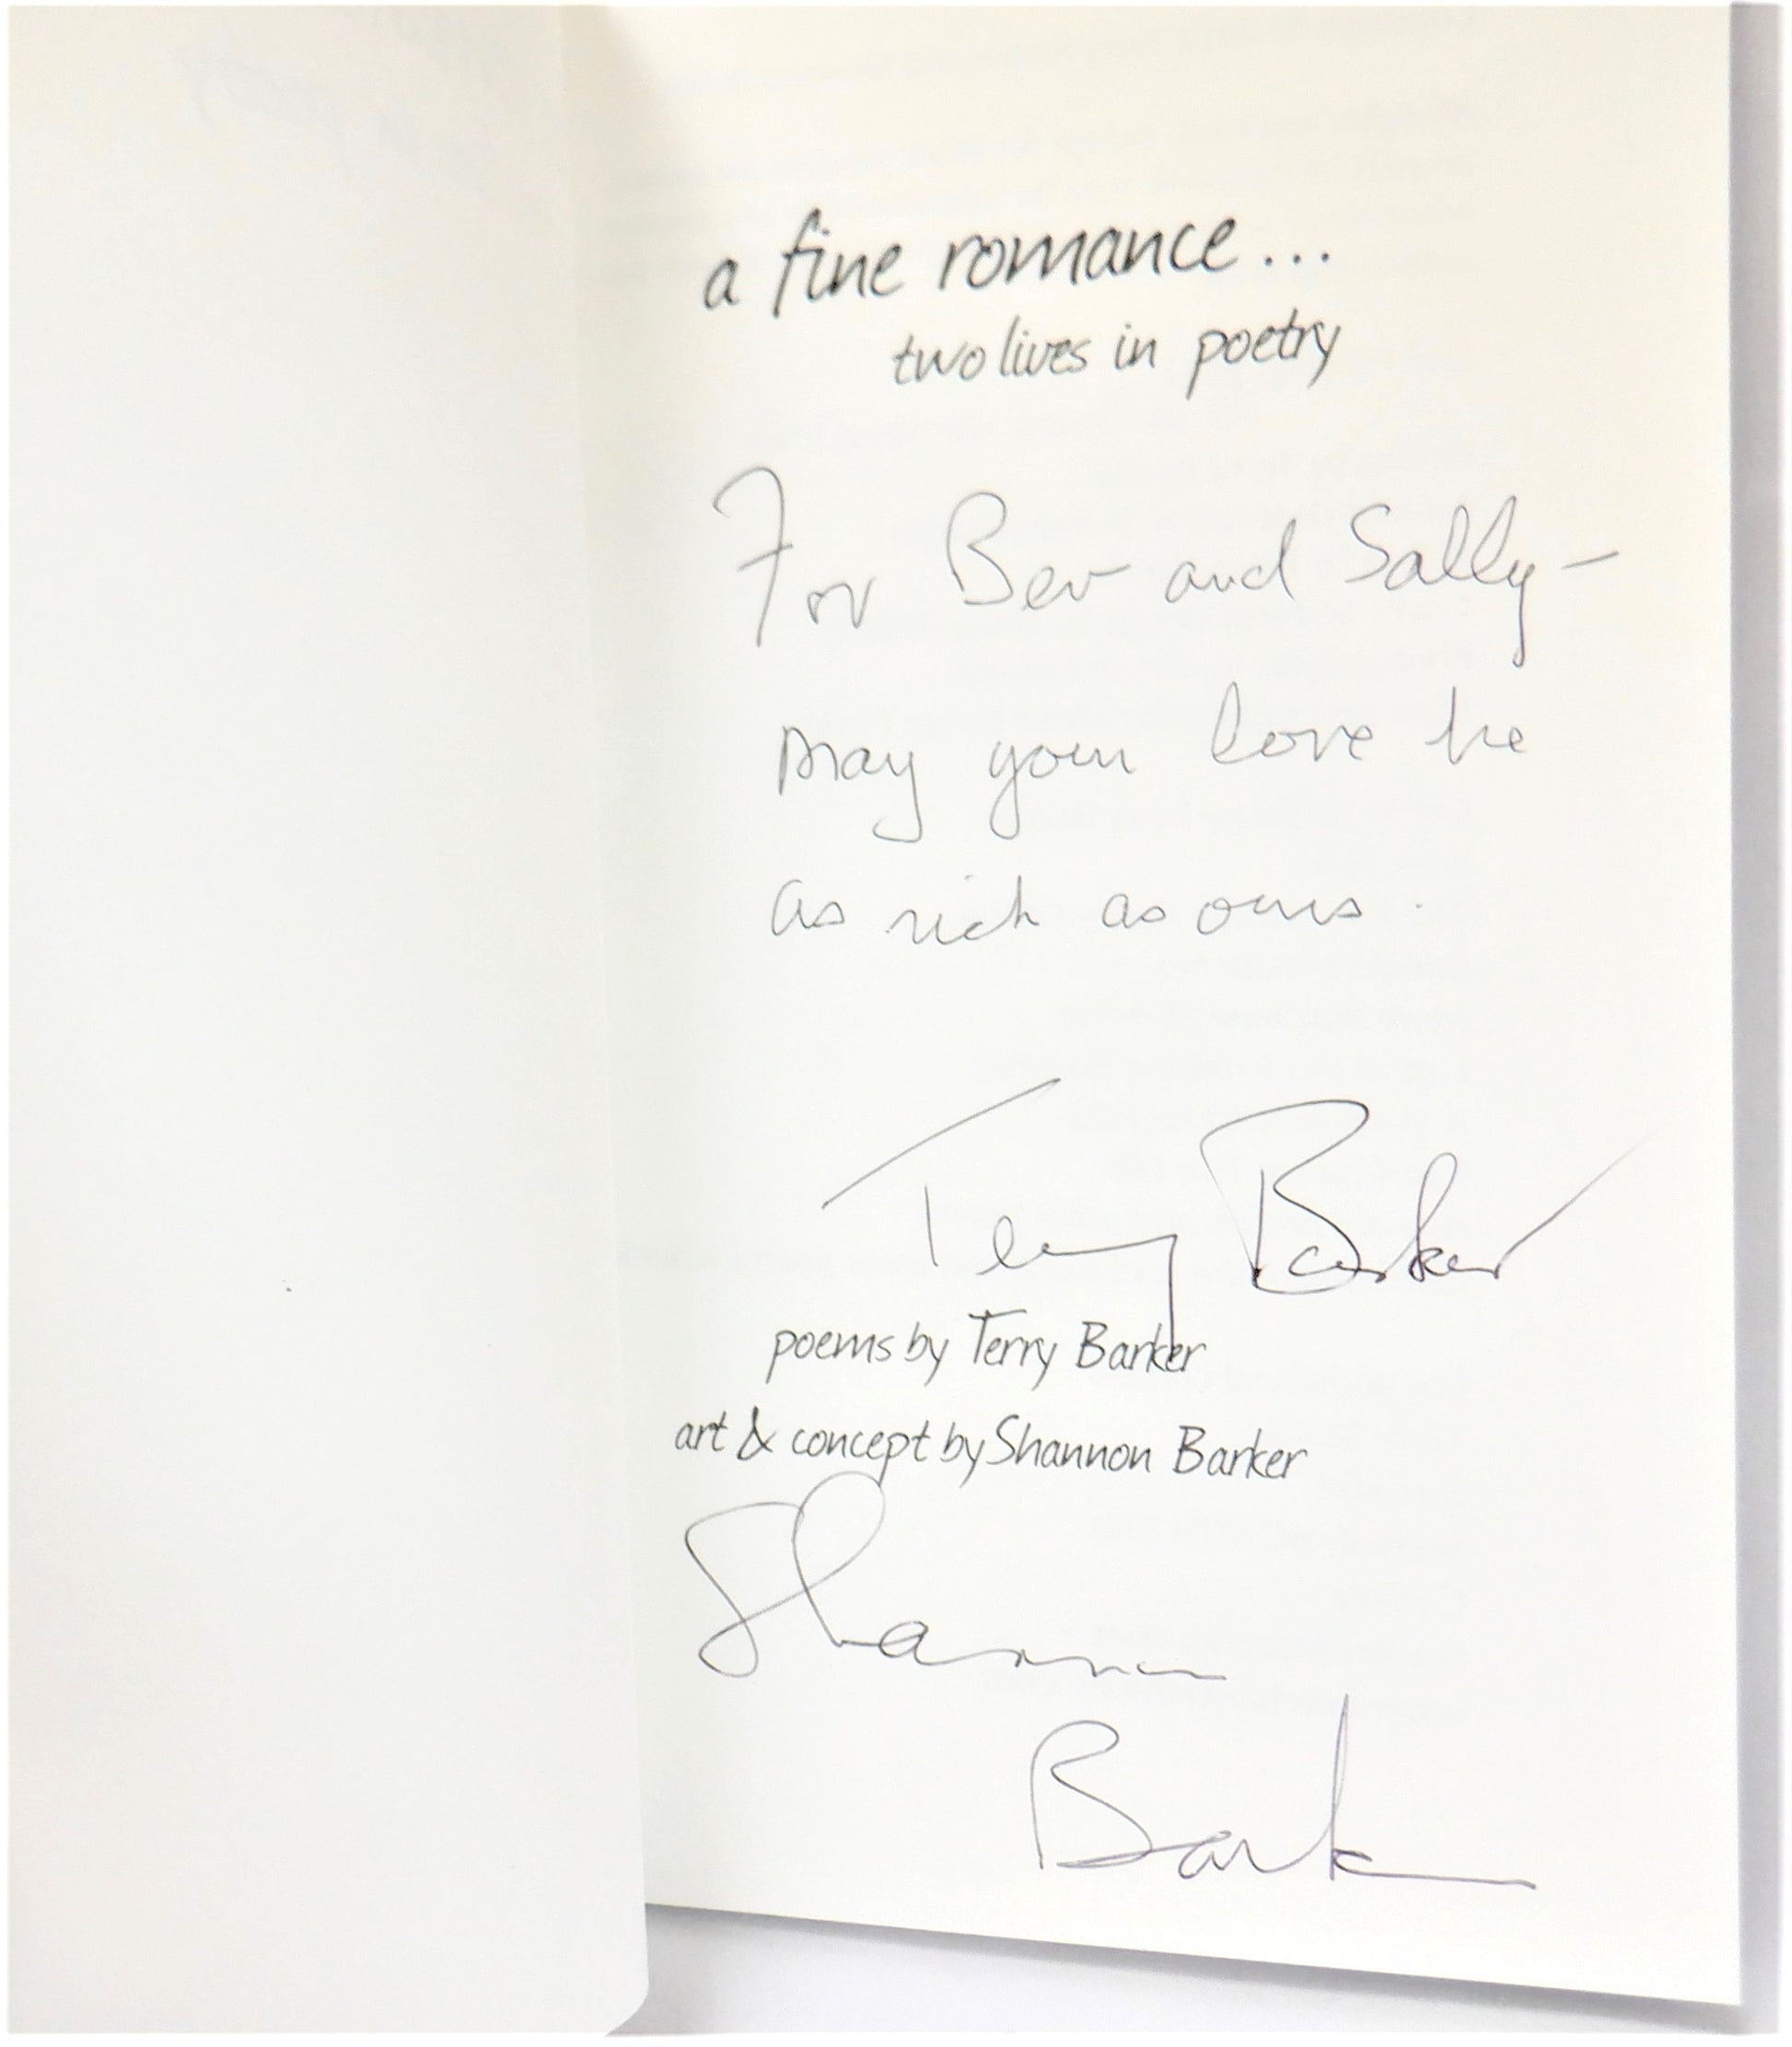 a fine romance...
two lives in poetry
For Bev and Sally -
may your love be
as rich as ours.
Terry Barker
poems by Terry Barker
art & concept by Shannon Barker
Shannon
Barker